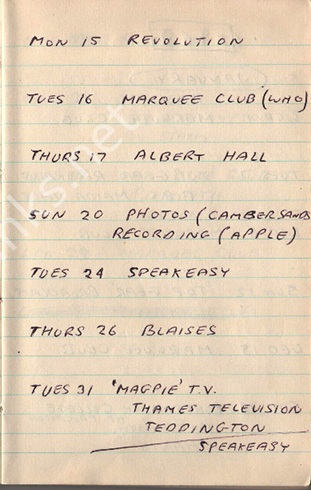 MON 15 REVOLUTION
TUES 16 MARQUEE CLUB (WHO)
THURS 17 ALBERT HALL
SUN 20 PHOTOS (CAMBERSANDS
RECORDING (APPLE)
TUES 24 SPEAKEASY
THURS 26 BLAISES
TUES 31 'MAGPIE' T.V.
THAMES TELEVISION
TEDDINGTON
SPEAKEASY